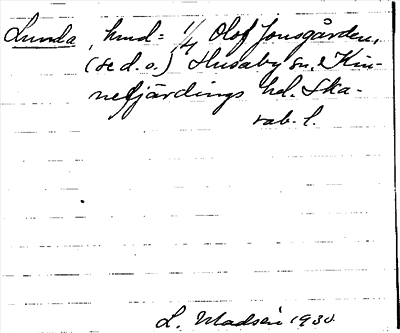 Lunda, hmd = 1/4 Olof Jonsgården,
(se d. o.) Husaby sn. Kin-
nefjärdings hd. Ska-
rab. l.
L. Madsén 1930